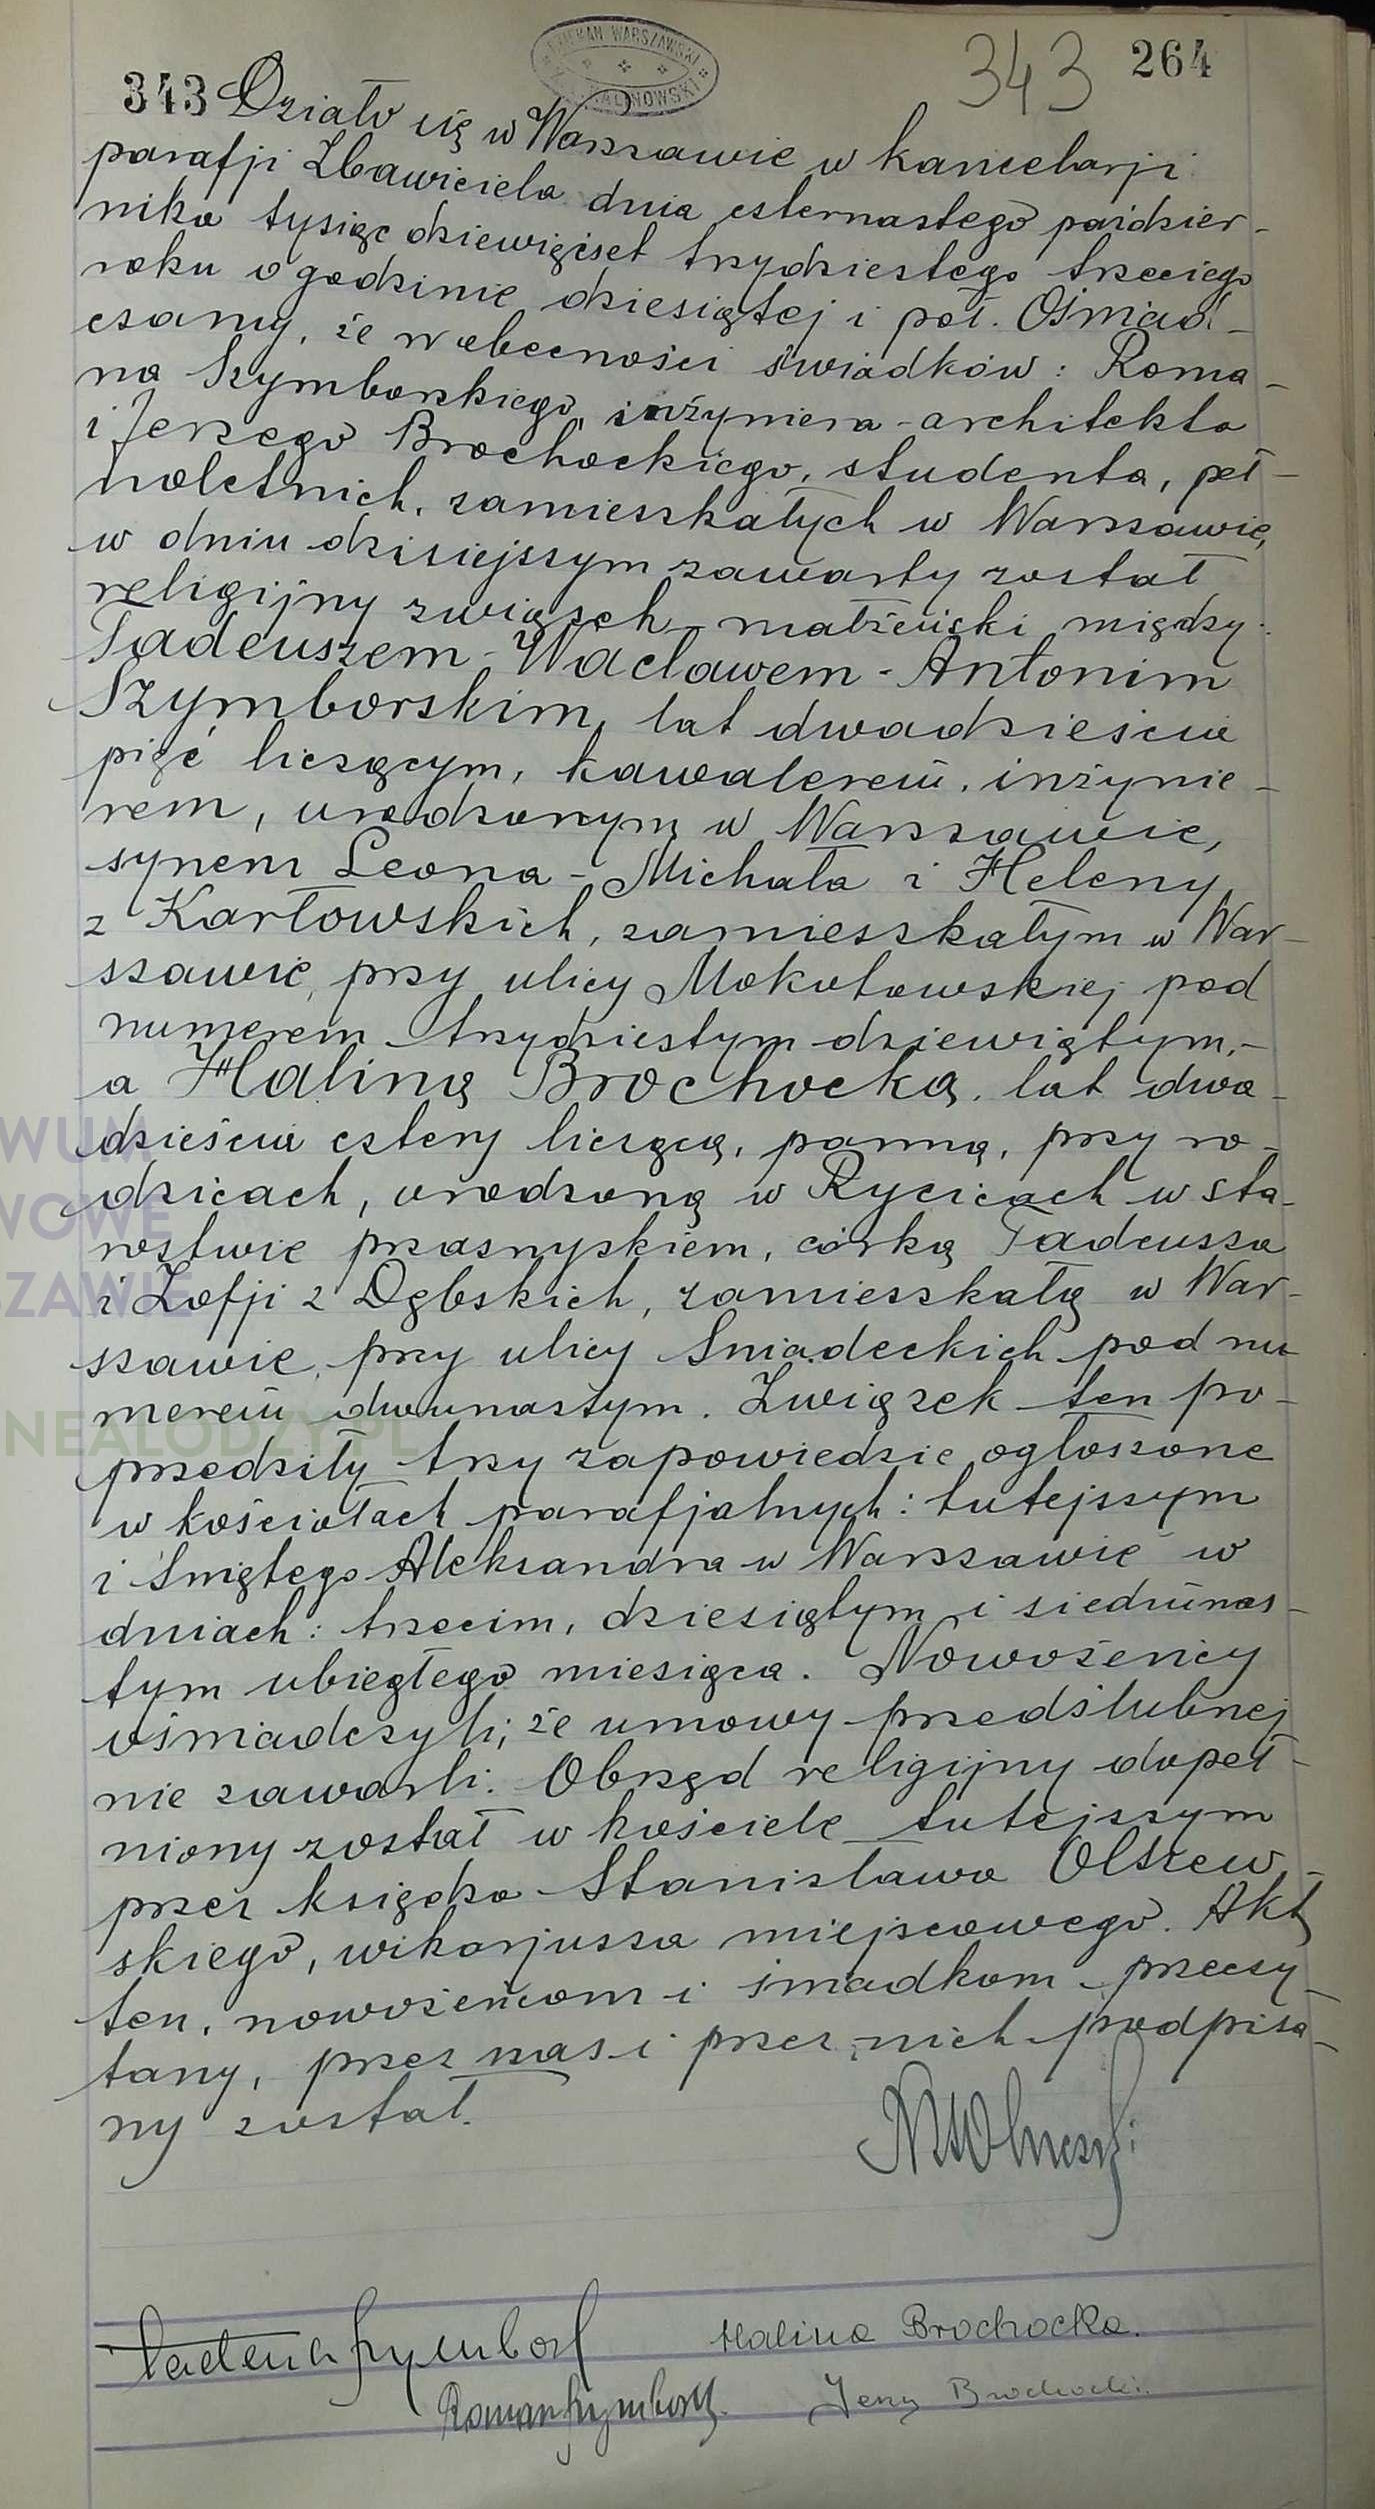 DZIEKAN WARSZAWSKI
KALINOWSKI
343 264
343 Działo się w Warszawie w kancelarji
parafji Zbawiciela dnia czternastego paździer-
nika tysiąc dziewięćset trzydziestego trzeciego
roku o godzinie dziesiątej i pół. Oświad-
czamy, że w obecności świadków: Roma-
na Szymborskiego, inżyniera-architekta
i Jerzego Brochockiego, studenta, peł-
noletnich, zamieszkałych w Warszawie,
w dniu dzisiejszym zawarty został
religijny związek małżeński między
Tadeuszem-Wacławem-Antonim
Szymborskim, lat dwadzieścia
pięć liczącym, kawalerem, inżynie-
rem, urodzonym w Warszawie,
synem Leona-Michała i Heleny
z Karłowskich, zamieszkałym w War-
szawie, przy ulicy Mokotowskiej pod
numerem trzydziestym dziewiątym,-
a Haliną Brochocką, lat dwa-
dzieścia cztery liczącą, panną, przy ro-
dzicach, urodzoną w Rycicach w sta-
rostwie przasnyskiem, córką Tadeusza
i Zofji z Dębskich, zamieszkałą w War-
szawie, przy ulicy Śniadeckich pod nu-
merem dwunastym. Związek ten po-
przedziły trzy zapowiedzie ogłoszone
w kościołach parafjalnych: tutejszym
i Świętego Aleksandra w Warszawie w
dniach: trzecim, dziesiątym i siedmnas-
tym ubiegłego miesiąca. Nowożeńcy
oświadczyli, że umowy przedślubnej
nie zawarli. Obrzęd religijny dopeł-
niony został w kościele tutejszym
przez księdza Stanisława Olszew-
skiego, wikarjusza miejscowego. Akt
ten, nowożeńcom i świadkom przeczy-
tany, przez nas i przez nich podpisa-
ny został.
Tadeusz Szymborski Halina Brochocka.
Roman Szymborski. Jerzy Brochocki.
WUM
WOWE
SZAWIE
NEALODZY.PL